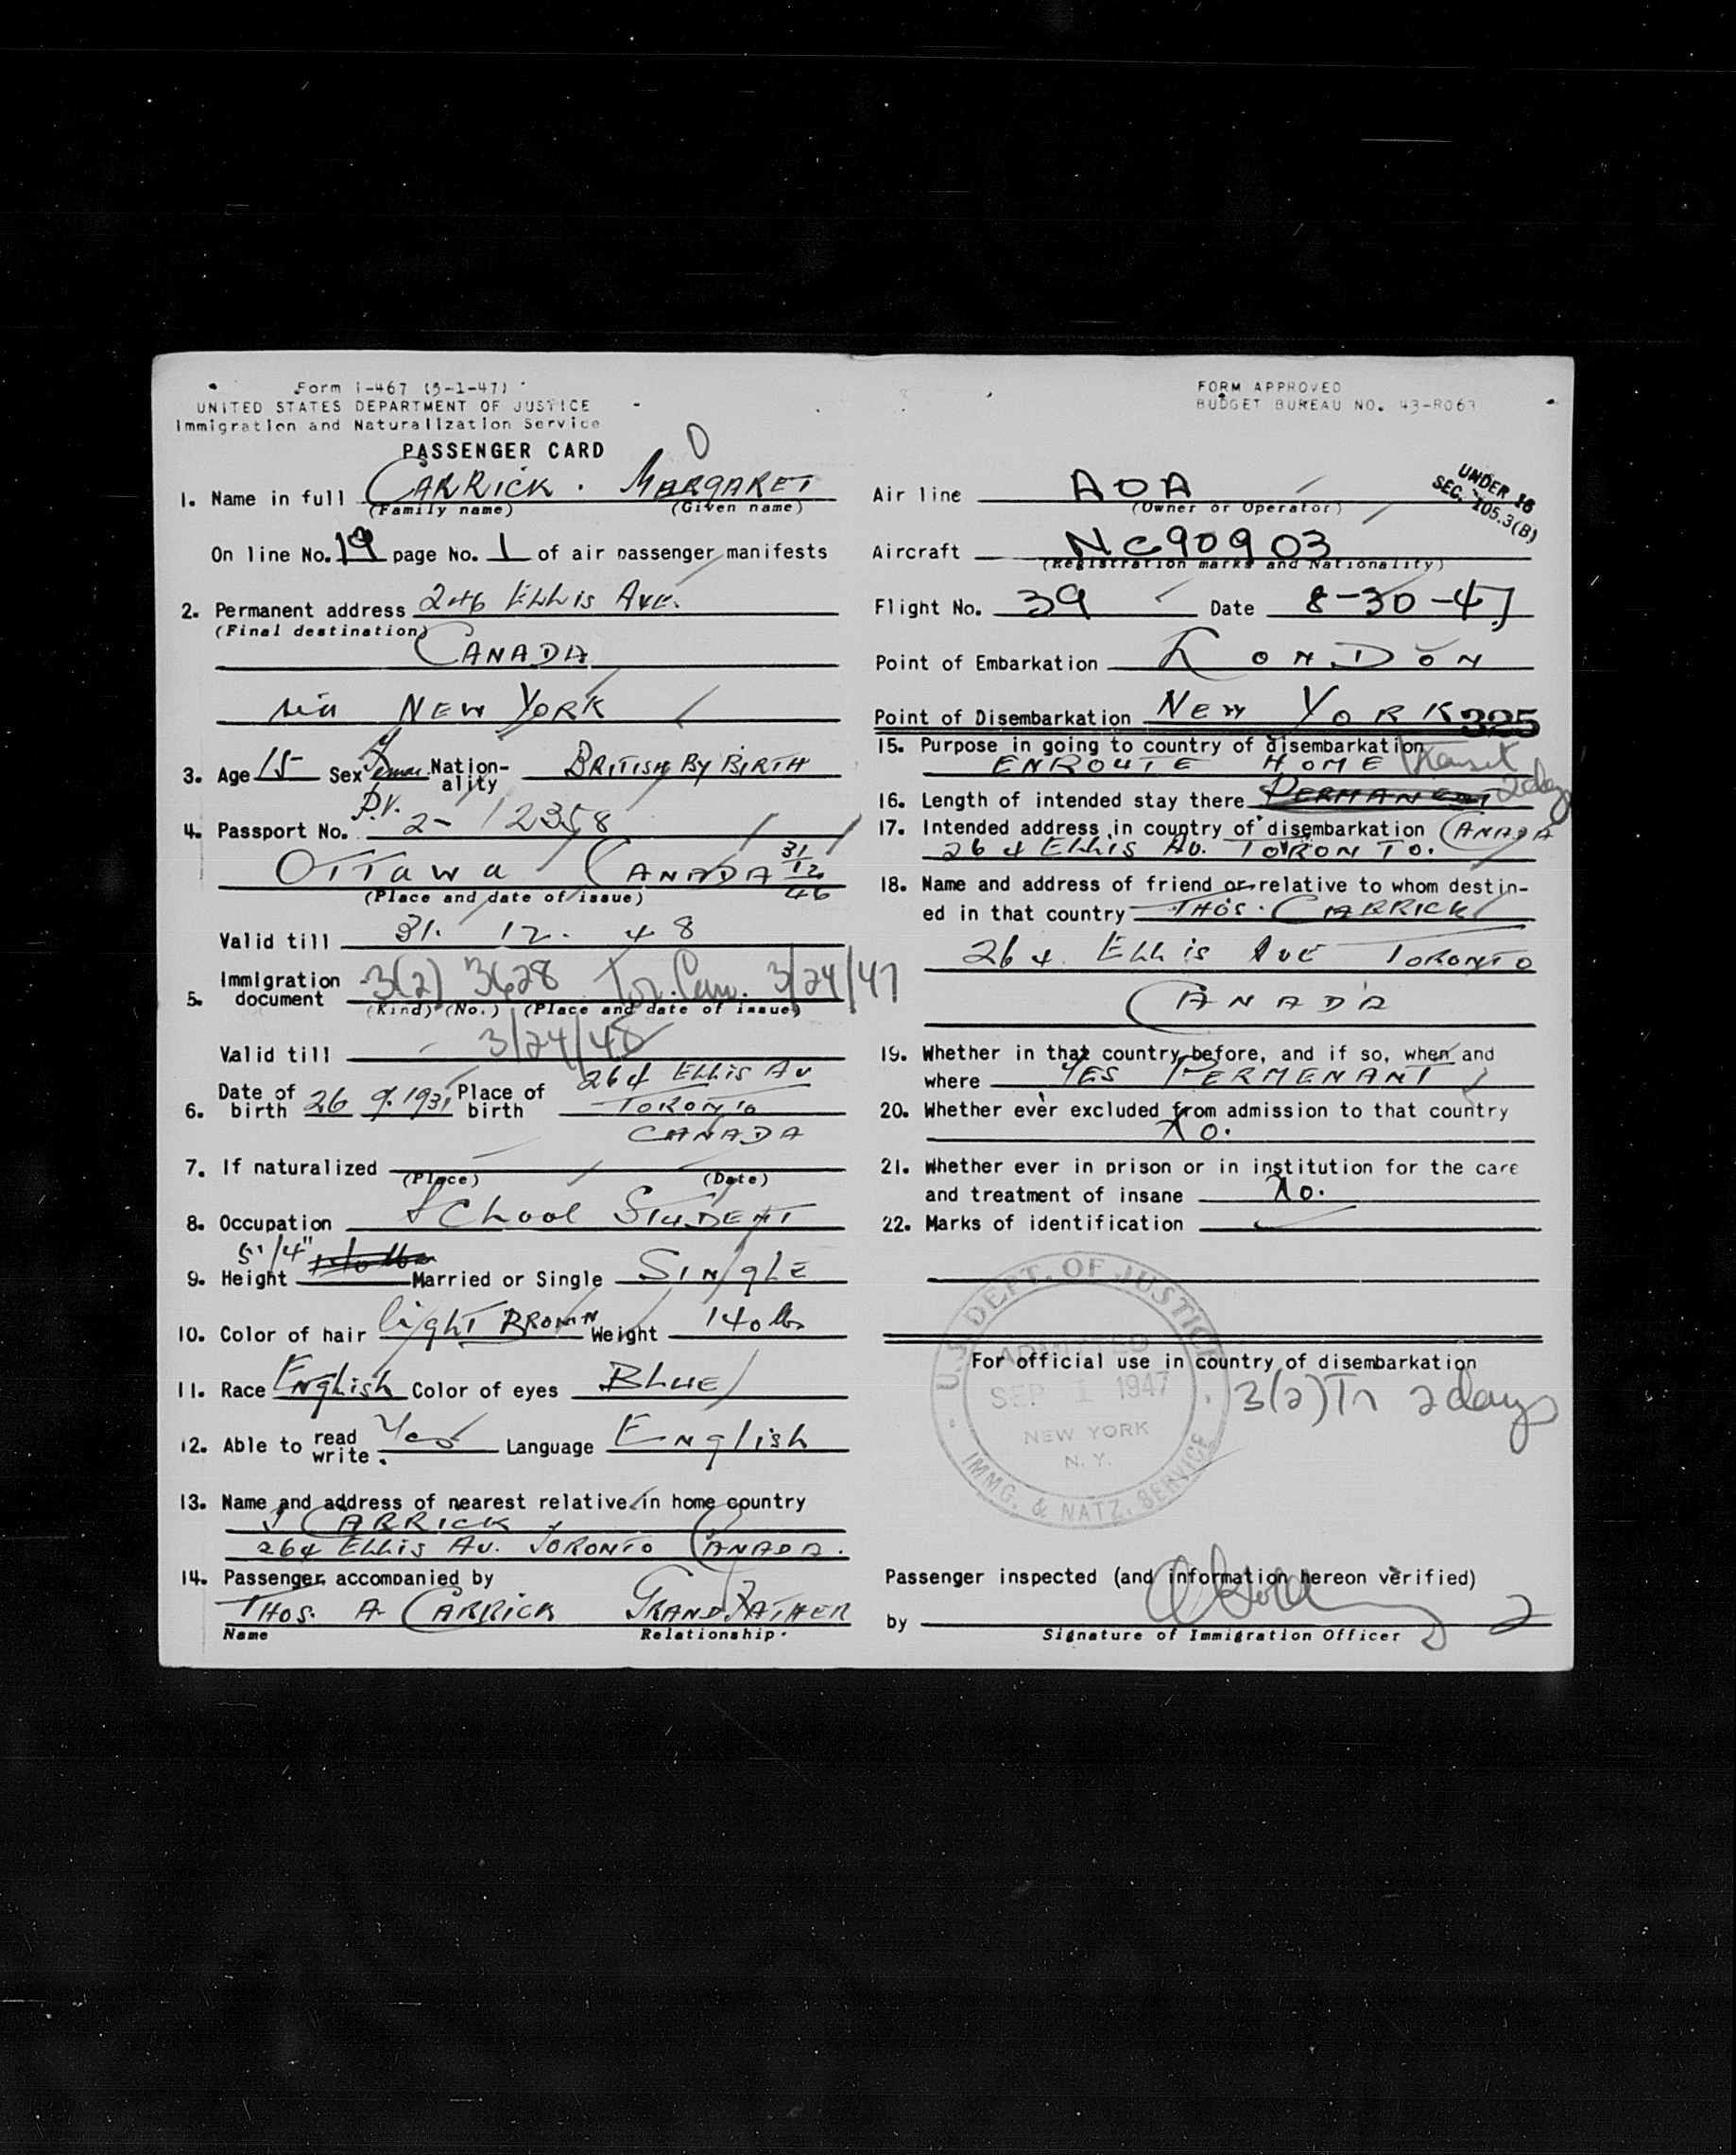 Form I-467 (5-1-47)
UNITED STATES DEPARTMENT OF JUSTICE
Immigration and Naturalization Service
PASSENGER CARD
1. Name in full CARRICK. MARGARET
(Family name) (Given name)
On line No. 19 page No. 1 of air passenger manifests
2. Permanent address 246 ELLIS AVE.
(Final destination)
CANADA
via NEW YORK
3. Age 15 Sex Nation-ality BRITISH BY BIRTH
4. Passport No. 2-12358
OTTAWA CANADA 31/12 46
(Place and date of issue)
Valid till 31. 12. 48
5. Immigration document 3(2) 3628 Tor. Can. 3/24/47
(Kind) (No.) (Place and date of issue)
Valid till 3/24/48
6. Date of birth 26 9. 1931 Place of birth 264 ELLIS AV
TORONTO
CANADA
7. If naturalized
(Place) (Date)
8. Occupation SCHOOL STUDENT
5' 1/4"
9. Height Married or Single SINGLE
10. Color of hair light BROWN Weight 140 lbs
11. Race English Color of eyes BLUE
12. Able to read write. Yes Language English
13. Name and address of nearest relative in home country
J CARRICK
264 ELLIS AV. TORONTO CANADA.
14. Passenger accompanied by
THOS. A CARRICK GRANDFATHER
Name Relationship.
FORM APPROVED
BUDGET BUREAU NO. 43-R063
UNDER 16
SEC. 105.3(B)
Air line AOA
(Owner or Operator)
Aircraft NC90903
(Registration marks and Nationality)
Flight No. 39 Date 8-30-47
Point of Embarkation LONDON
Point of Disembarkation NEW YORK 325
15. Purpose in going to country of disembarkation
ENROUTE HOME Transit
16. Length of intended stay there PERMANENT 2 days
17. Intended address in country of disembarkation CANADA
264 ELLIS AV. TORONTO.
18. Name and address of friend or relative to whom destin-
ed in that country THOS. CARRICK
264 ELLIS AVE TORONTO
CANADA
19. Whether in that country before, and if so, when and
where YES PERMENANT
20. Whether ever excluded from admission to that country
No.
21. Whether ever in prison or in institution for the care
and treatment of insane No.
22. Marks of identification
For official use in country of disembarkation
3(2) Tr 2 days
U.S. DEPT. OF JUSTICE
ADMITTED
SEP 1 1947
NEW YORK
N.Y.
IMMG. & NATZ. SERVICE
Passenger inspected (and information hereon verified)
by
Signature of Immigration Officer